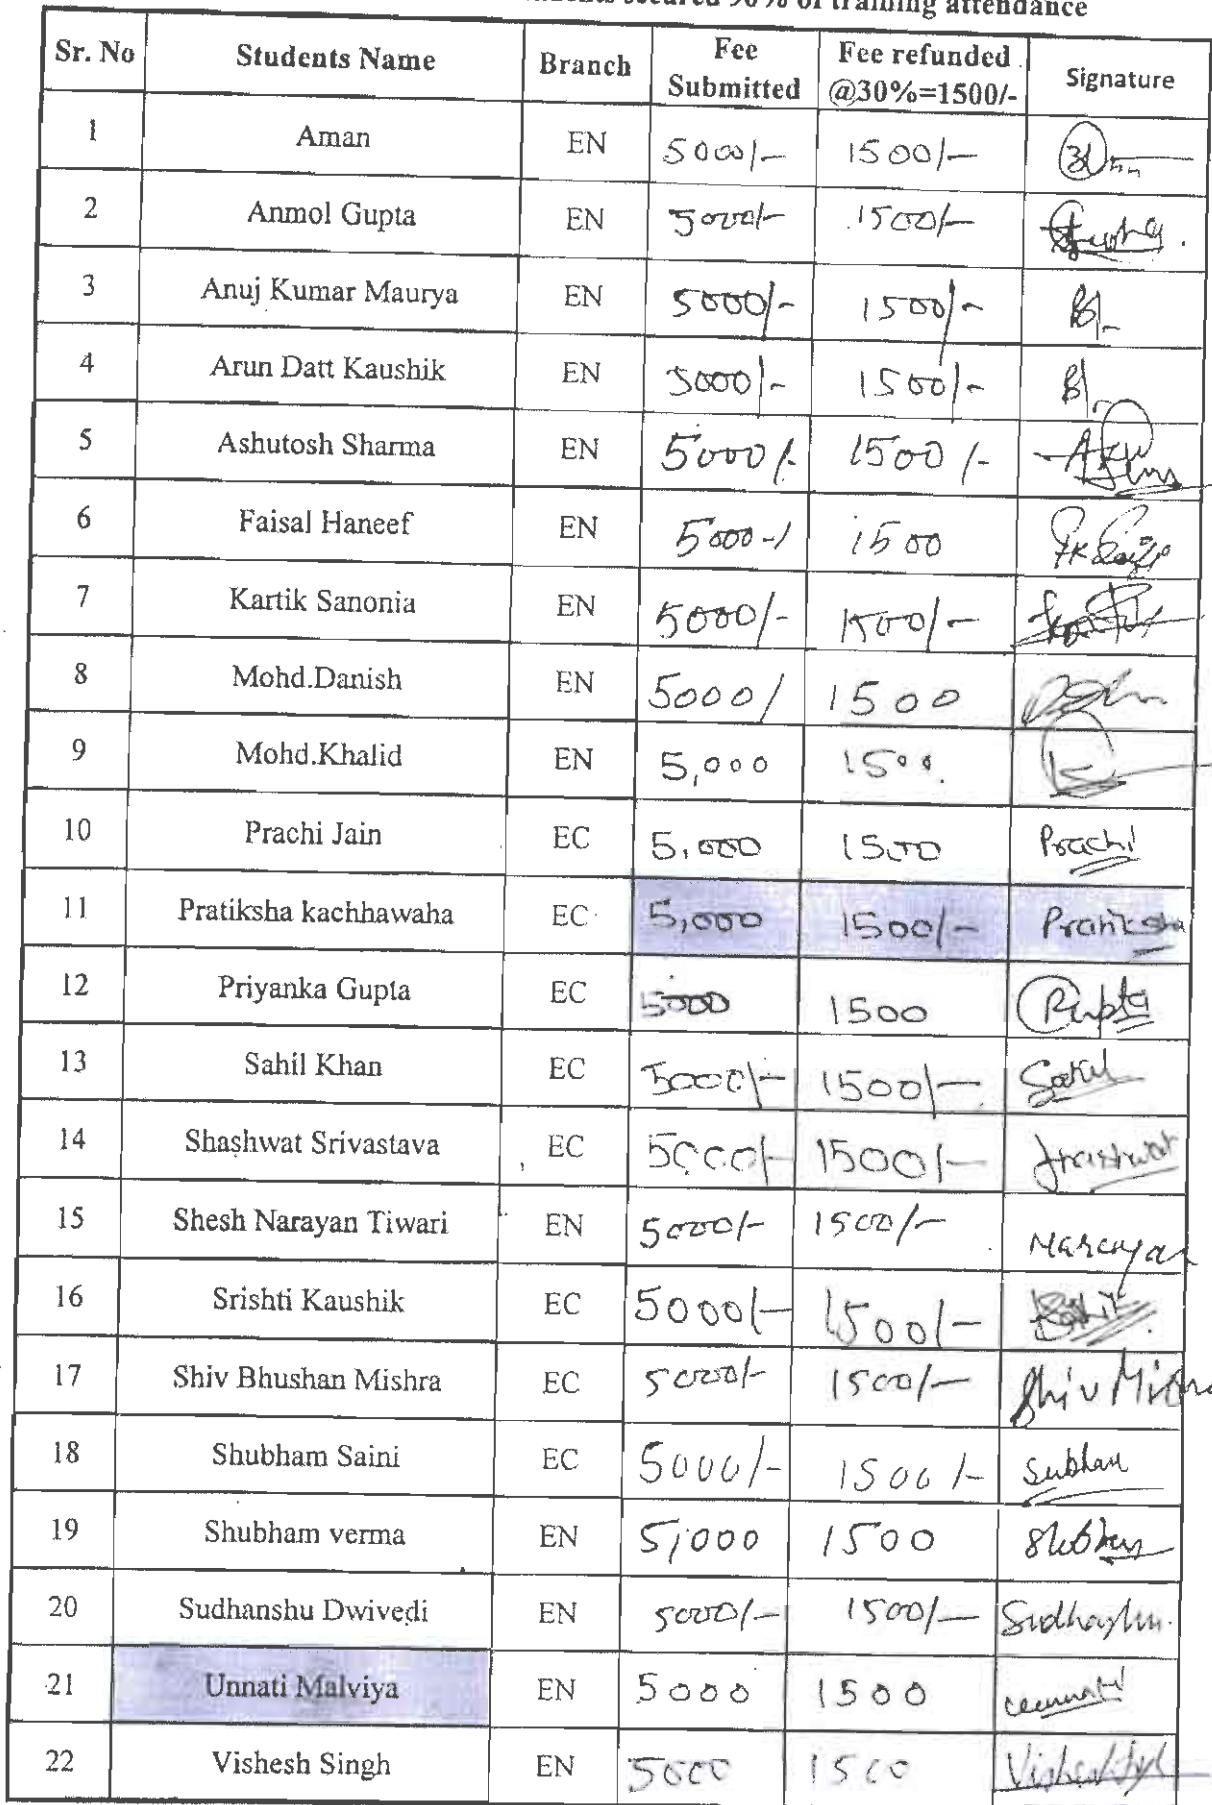 secured 90% of training attendance
Sr. No Students Name Branch Fee Submitted Fee refunded @30%=1500/- Signature
1 Aman EN 5000/- 1500/-
2 Anmol Gupta EN 5000/- 1500/-
3 Anuj Kumar Maurya EN 5000/- 1500/-
4 Arun Datt Kaushik EN 5000/- 1500/-
5 Ashutosh Sharma EN 5000/- 1500/-
6 Faisal Haneef EN 5000-/ 1500
7 Kartik Sanonia EN 5000/- 1500/-
8 Mohd.Danish EN 5000/ 1500
9 Mohd.Khalid EN 5,000 1500.
10 Prachi Jain EC 5,000 1500 Prachi
11 Pratiksha kachhawaha EC 5,000 1500/- Pratiksha
12 Priyanka Gupta EC 5000 1500 PGupta
13 Sahil Khan EC 5000/- 1500/- Sahil
14 Shashwat Srivastava EC 5000/- 1500/- Shashwat
15 Shesh Narayan Tiwari EN 5000/- 1500/- Narayan
16 Srishti Kaushik EC 5000/- 1500/-
17 Shiv Bhushan Mishra EC 5000/- 1500/- Shiv Mishra
18 Shubham Saini EC 5000/- 1500/- Subham
19 Shubham verma EN 5,000 1500 Shubham
20 Sudhanshu Dwivedi EN 5000/- 1500/- Sudhanshu
21 Unnati Malviya EN 5000 1500 Unnati
22 Vishesh Singh EN 5000 1500